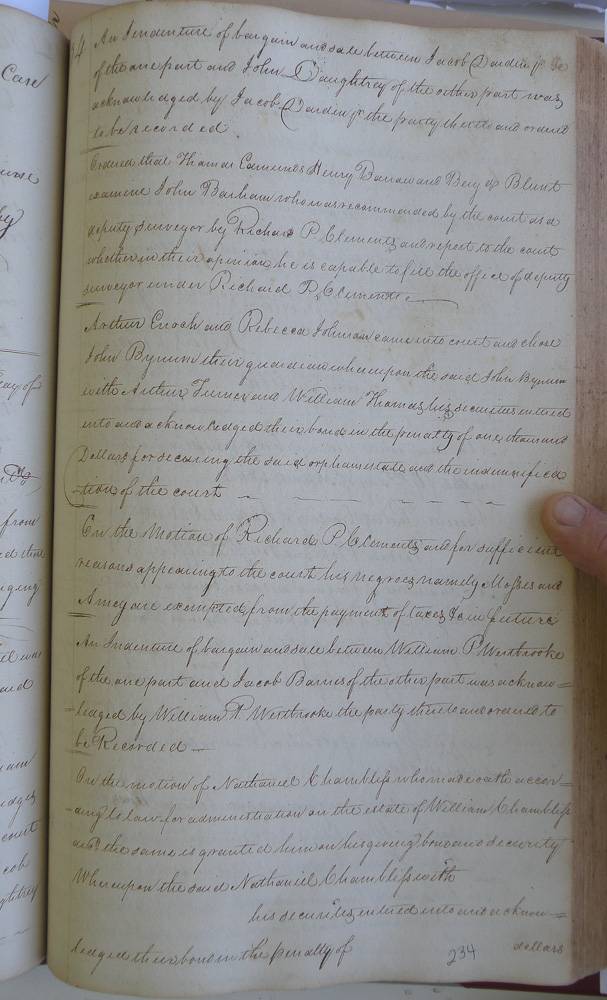 An Indenture of bargain and sale between Jacob Darden jr
of the one part and John Daughtrey of the other part was
acknowledged by Jacob Darden jr the party thereto and ordered
to be recorded
Ordered that Thomas Camends Henry Barrow and Benj D Blunt
examine John Barham who was recommended by the court as a
deputy surveyor by Richard P Clements and report to the court
whether in their opinion he is capable to fill the office of deputy
surveyor under Richard P. Clements
Arthur Enoch and Rebecca Johnson came into court and chose
John Bynum their guardian whereupon the said John Bynum
with Arthur Turner and William Thomas his securities entered
into and acknowledged their bond in the penalty of one thousand
Dollars for securing the said orphans estate and the indemnifica
-tion of the court
On the Motion of Richard P Clements and for sufficient
reasons appearing to the court his negroes namely Mosses and
Amey are exempted from the payment of taxes &c in future
An Indenture of bargain and sale between William P Westbrooke
of the one part and Jacob Barnes of the other part was acknow=
=ledged by William P. Westbrooke the party thereto and ordered to
be Recorded —
On the motion of Nathaniel Chambless who made oath accor-
-ding to law for administration on the estate of William Chambless
decd the same is granted him on his giving bond and security
Whereupon the said Nathaniel Chambless with
his securities entered into and acknow=
ledged their bond in the penalty of dollars
234